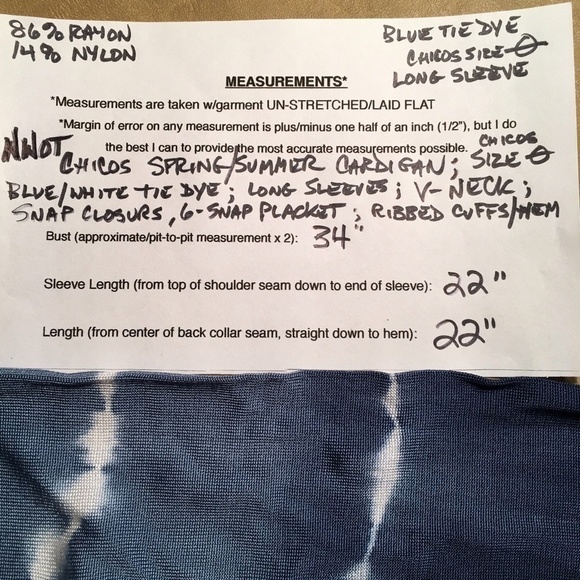 86% RAYON
14% NYLON
BLUE TIE DYE
CHICOS SIZE 0
LONG SLEEVE
MEASUREMENTS*
*Measurements are taken w/garment UN-STRETCHED/LAID FLAT
*Margin of error on any measurement is plus/minus one half of an inch (1/2"), but I do
the best I can to provide the most accurate measurements possible.
NWOT CHICOS SPRING/SUMMER CARDIGAN; CHICOS SIZE 0
BLUE/WHITE TIE DYE; LONG SLEEVES; V-NECK;
SNAP CLOSURS, 6-SNAP PLACKET; RIBBED CUFFS/HEM
Bust (approximate/pit-to-pit measurement x 2): 34"
Sleeve Length (from top of shoulder seam down to end of sleeve): 22"
Length (from center of back collar seam, straight down to hem): 22"